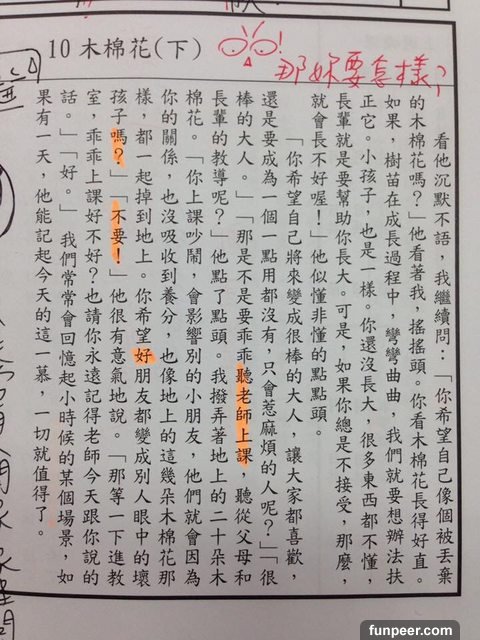 10 木棉花(下)
那妳要怎樣?
看他沉默不語，我繼續問：「你希望自己像個被丟棄
的木棉花嗎？」他看著我，搖搖頭。你看木棉花長得好直。
如果，樹苗在成長過程中，彎彎曲曲，我們就要想辦法扶
正它。小孩子，也是一樣。你還沒長大，很多東西都不懂，
長輩就是要幫助你長大。可是，如果你總是不接受，那麼，
就會長不好喔！」他似懂非懂的點點頭。
「你希望自己將來變成很棒的大人，讓大家都喜歡，
還是要成為一個一點用都沒有，只會惹麻煩的人呢？」「很
棒的大人。」「那是不是要乖乖聽老師上課，聽從父母和
長輩的教導呢？」他點了點頭。我撥弄著地上的二十朵木
棉花。「你上課吵鬧，會影響別的小朋友，他們就會因為
你的關係，也沒吸收到養分，也像地上的這幾朵木棉花那
樣，都一起掉到地上。你希望好朋友都變成別人眼中的壞
孩子嗎？」「不要！」他很有意氣地說。「那等一下進教
室，乖乖上課好不好？也請你永遠記得老師今天跟你說的
話。」「好。」 我們常常會回憶起小時候的某個場景，如
果有一天，他能記起今天的這一幕，一切就值得了。
funpeer.com